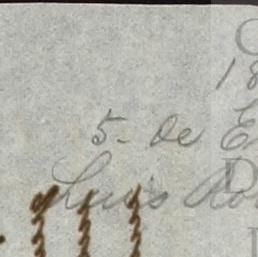 18
5. de E
Luis Ro